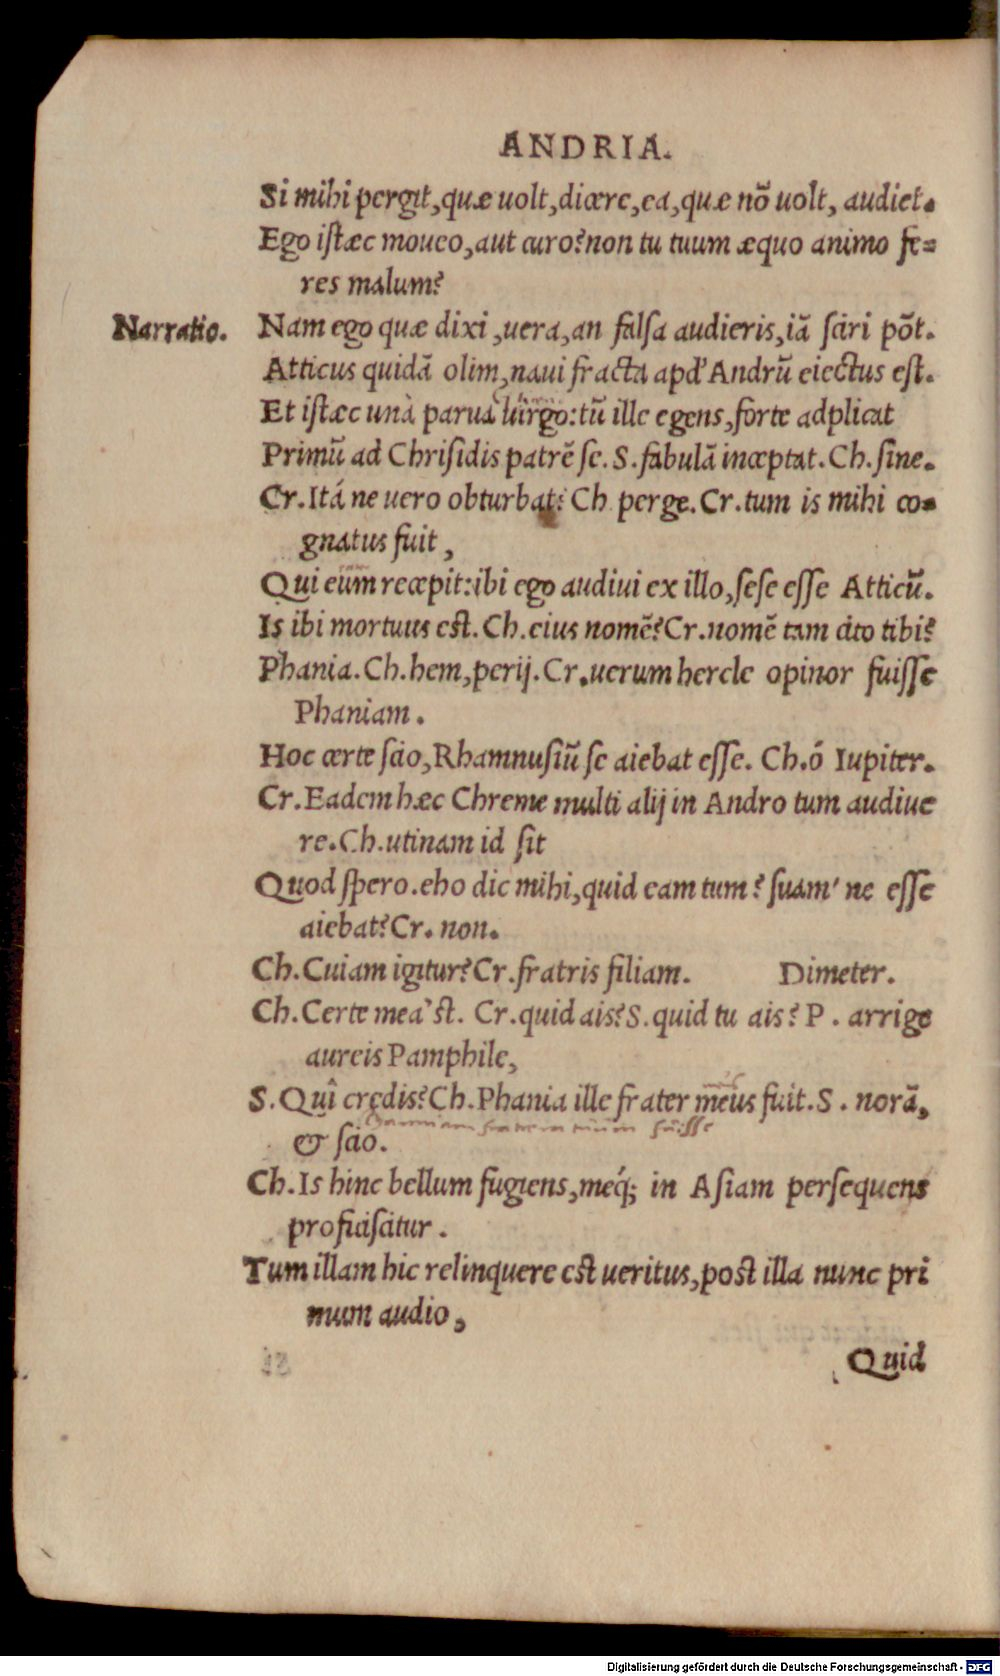 ANDRIA.
Si mihi pergit, quæ uolt, dicere, ea, quæ nõ uolt, audiet.
Ego istæc moueo, aut curo? non tu tuum æquo animo fe=
res malum?
Narratio.
Nam ego quæ dixi, uera, an falsa audieris, iã sciri põt.
Atticus quidã olim, naui fracta apd' Andrũ eiectus est.
Et istæc unà parua uirgo: tũ ille egens, forte adplicat
Primũ ad Chrisidis patrẽ se. S. fabulã inceptat. Ch. sine.
Cr. Itá ne uero obturbat? Ch perge. Cr. tum is mihi co=
gnatus fuit,
Qui eum recepit: ibi ego audiui ex illo, sese esse Atticũ.
Is ibi mortuus est. Ch. eius nomẽ? Cr. nomẽ tam cito tibi?
Phania. Ch. hem, perij. Cr. uerum hercle opinor fuisse
Phaniam.
Hoc certe scio, Rhamnusiũ se aiebat esse. Ch. ó Iupiter.
Cr. Eadem hæc Chreme multi alij in Andro tum audiue
re. Ch. utinam id sit
Quod spero. eho dic mihi, quid eam tum? suam' ne esse
aiebat? Cr. non.
Ch. Cuiam igitur? Cr. fratris filiam. Dimeter.
Ch. Certe mea'st. Cr. quid ais? S. quid tu ais? P. arrige
aureis Pamphile,
S. Quî credis? Ch. Phania ille frater meus fuit. S. norã,
fratrem tuum fuisse
& scio.
Ch. Is hinc bellum fugiens, meq́; in Asiam persequens
proficiscitur.
Tum illam hic relinquere est ueritus, post illa nunc pri
mum audio,
Quid
Digitalisierung gefördert durch die Deutsche Forschungsgemeinschaft - DFG